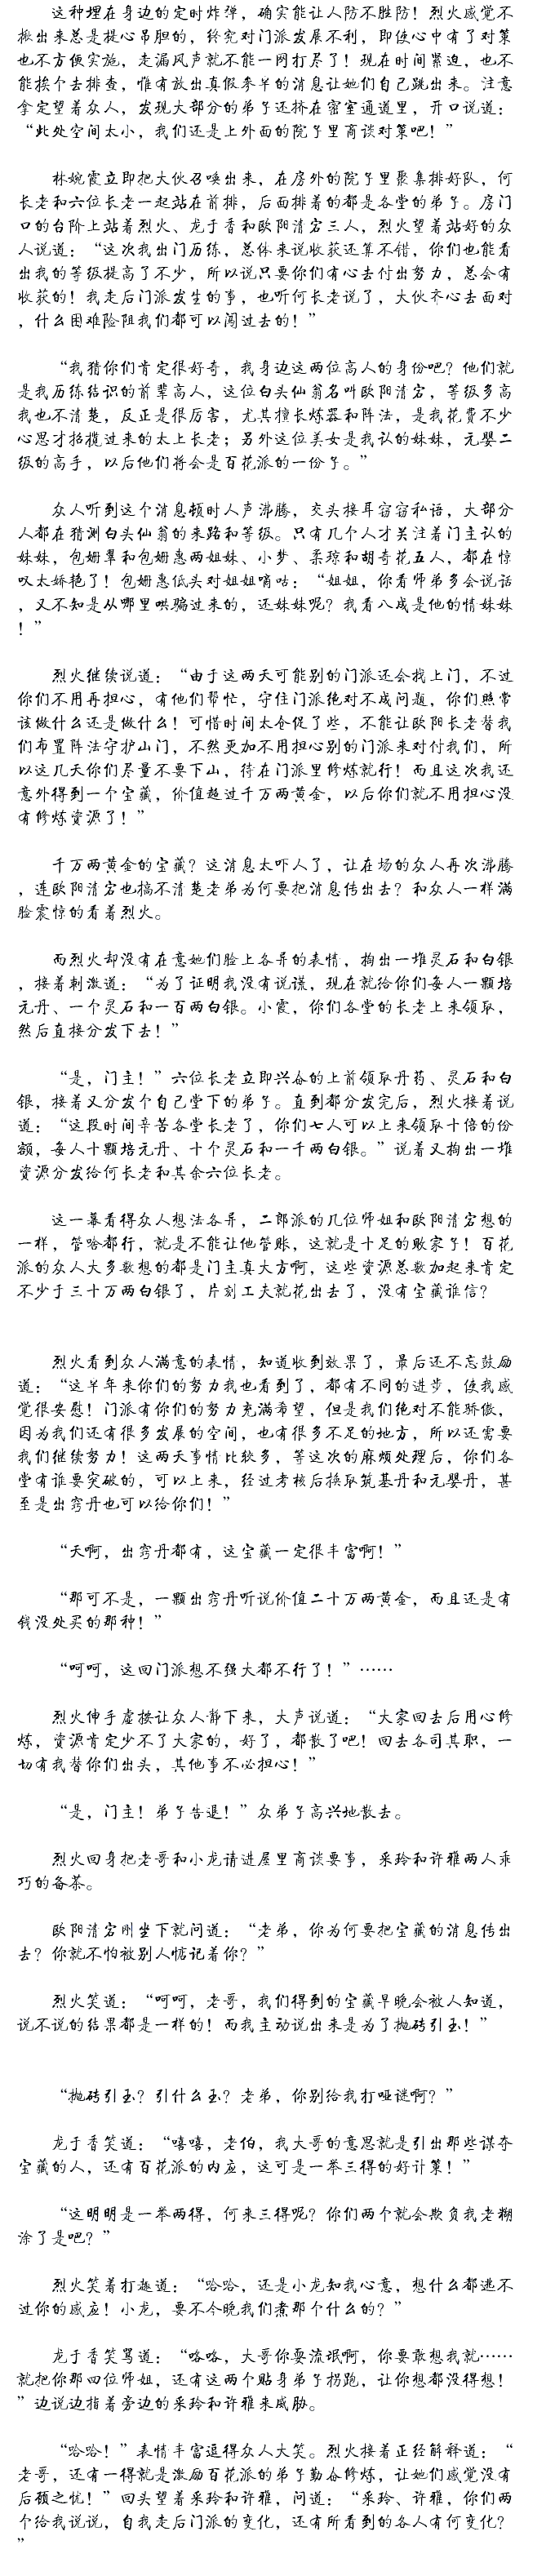 这种埋在身边的定时炸弹，确实能让人防不胜防！烈火感觉不
揪出来总是提心吊胆的，终究对门派发展不利，即使心中有了对策
也不方便实施，走漏风声就不能一网打尽了！现在时间紧迫，也不
能挨个去排查，惟有放出真假参半的消息让她们自己跳出来。注意
拿定望着众人，发现大部分的弟子还挤在密室通道里，开口说道：
“此处空间太小，我们还是上外面的院子里商谈对策吧！”
林婉霞立即把大伙召唤出来，在房外的院子里聚集排好队，何
长老和六位长老一起站在前排，后面排着的都是各堂的弟子。房门
口的台阶上站着烈火、龙于香和欧阳清宕三人，烈火望着站好的众
人说道：“这次我出门历练，总体来说收获还算不错，你们也能看
出我的等级提高了不少，所以说只要你们有心去付出努力，总会有
收获的！我走后门派发生的事，也听何长老说了，大伙齐心去面对
，什么困难险阻我们都可以闯过去的！”
“我猜你们肯定很好奇，我身边这两位高人的身份吧？他们就
是我历练结识的前辈高人，这位白头仙翁名叫欧阳清宕，等级多高
我也不清楚，反正是很厉害，尤其擅长炼器和阵法，是我花费不少
心思才招揽过来的太上长老；另外这位美女是我认的妹妹，元婴二
级的高手，以后他们将会是百花派的一份子。”
众人听到这个消息顿时人声沸腾，交头接耳窃窃私语，大部分
人都在猜测白头仙翁的来路和等级。只有几个人才关注着门主认的
妹妹，包姗翠和包姗惠两姐妹、小梦、柔琼和胡奇花五人，都在惊
叹太娇艳了！包姗惠低头对姐姐嘀咕：“姐姐，你看师弟多会说话
，又不知是从哪里哄骗过来的，还妹妹呢？我看八成是他的情妹妹
！”
烈火继续说道：“由于这两天可能别的门派还会找上门，不过
你们不用再担心，有他们帮忙，守住门派绝对不成问题，你们照常
该做什么还是做什么！可惜时间太仓促了些，不能让欧阳长老替我
们布置阵法守护山门，不然更加不用担心别的门派来对付我们，所
以这几天你们尽量不要下山，待在门派里修炼就行！而且这次我还
意外得到一个宝藏，价值超过千万两黄金，以后你们就不用担心没
有修炼资源了！”
千万两黄金的宝藏？这消息太吓人了，让在场的众人再次沸腾
，连欧阳清宕也搞不清楚老弟为何要把消息传出去？和众人一样满
脸震惊的看着烈火。
而烈火却没有在意她们脸上各异的表情，掏出一堆灵石和白银
，接着刺激道：“为了证明我没有说谎，现在就给你们每人一颗培
元丹、一个灵石和一百两白银。小霞，你们各堂的长老上来领取，
然后直接分发下去！”
“是，门主！”六位长老立即兴奋的上前领取丹药、灵石和白
银，接着又分发个自己堂下的弟子。直到都分发完后，烈火接着说
道：“这段时间辛苦各堂长老了，你们七人可以上来领取十倍的份
额，每人十颗培元丹、十个灵石和一千两白银。”说着又掏出一堆
资源分发给何长老和其余六位长老。
这一幕看得众人想法各异，二郎派的几位师姐和欧阳清宕想的
一样，管啥都行，就是不能让他管账，这就是十足的败家子！百花
派的众人大多数想的都是门主真大方啊，这些资源总数加起来肯定
不少于三十万两白银了，片刻工夫就花出去了，没有宝藏谁信？
烈火看到众人满意的表情，知道收到效果了，最后还不忘鼓励
道：“这半年来你们的努力我也看到了，都有不同的进步，使我感
觉很安慰！门派有你们的努力充满希望，但是我们绝对不能骄傲，
因为我们还有很多发展的空间，也有很多不足的地方，所以还需要
我们继续努力！这两天事情比较多，等这次的麻烦处理后，你们各
堂有谁要突破的，可以上来，经过考核后换取筑基丹和元婴丹，甚
至是出窍丹也可以给你们！”
“天啊，出窍丹都有，这宝藏一定很丰富啊！”
“那可不是，一颗出窍丹听说价值二十万两黄金，而且还是有
钱没处买的那种！”
“呵呵，这回门派想不强大都不行了！”……
烈火伸手虚按让众人静下来，大声说道：“大家回去后用心修
炼，资源肯定少不了大家的，好了，都散了吧！回去各司其职，一
切有我替你们出头，其他事不必担心！”
“是，门主！弟子告退！”众弟子高兴地散去。
烈火回身把老哥和小龙请进屋里商谈要事，采玲和许雅两人乖
巧的备茶。
欧阳清宕刚坐下就问道：“老弟，你为何要把宝藏的消息传出
去？你就不怕被别人惦记着你？”
烈火笑道：“呵呵，老哥，我们得到的宝藏早晚会被人知道，
说不说的结果都是一样的！而我主动说出来是为了抛砖引玉！”
“抛砖引玉？引什么玉？老弟，你别给我打哑谜啊？”
龙于香笑道：“嘻嘻，老伯，我大哥的意思就是引出那些谋夺
宝藏的人，还有百花派的内应，这可是一举三得的好计策！”
“这明明是一举两得，何来三得呢？你们两个就会欺负我老糊
涂了是吧？”
烈火笑着打趣道：“哈哈，还是小龙知我心意，想什么都逃不
过你的感应！小龙，要不今晚我们煮那个什么的？”
龙于香笑骂道：“咯咯，大哥你耍流氓啊，你要敢想我就……
就把你那四位师姐，还有这两个贴身弟子拐跑，让你想都没得想！
”边说边指着旁边的采玲和许雅来威胁。
“哈哈！”表情丰富逗得众人大笑。烈火接着正经解释道：“
老哥，还有一得就是激励百花派的弟子勤奋修炼，让她们感觉没有
后顾之忧！”回头望着采玲和许雅，问道：“采玲、许雅，你们两
个给我说说，自我走后门派的变化，还有所看到的各人有何变化？
”